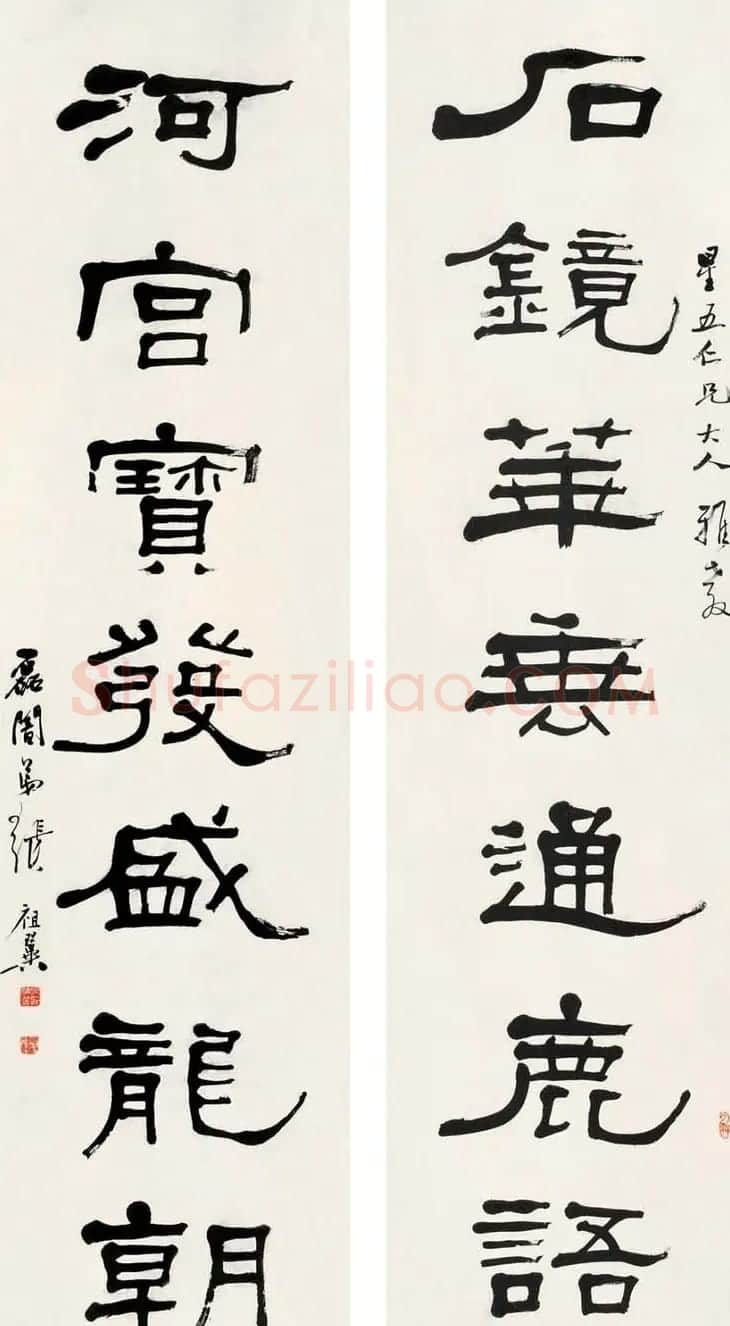 星五仁兄大人雅教
石鏡華通鹿語
河宮寶發盛龍朝
磊闇弟張祖翼
Shufaziliao.COM